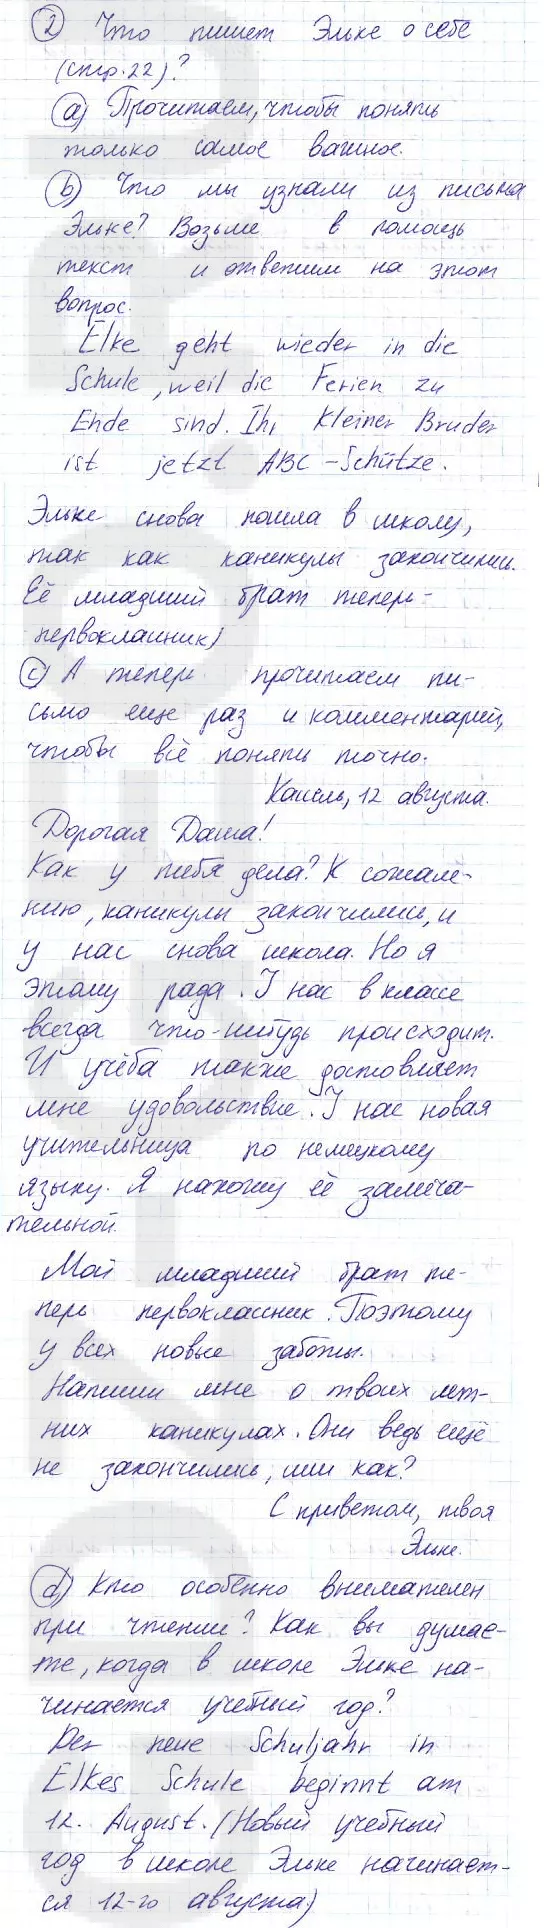 2 Что пишет Эльке о себе
(стр. 22)?
a) Прочитаем, чтобы понять
только самое важное.
b) Что мы узнали из письма
Эльке? Возьмем в помощь
текст и ответим на этот
вопрос.
Elke geht wieder in die
Schule, weil die Ferien zu
Ende sind. Ihr kleiner Bruder
ist jetzt ABC-Schütze.
Эльке снова пошла в школу,
так как каникулы закончились.
Её младший брат теперь -
первоклашник)
c) А теперь прочитаем пи-
сьмо еще раз и комментарий,
чтобы всё понять точно.
Кассель, 12 августа.
Дорогая Даша!
Как у тебя дела? К сожале-
нию, каникулы закончились, и
у нас снова школа. Но я
этому рада. У нас в классе
всегда что-нибудь происходит.
И учёба также доставляет
мне удовольствие. У нас новая
учительница по немецкому
языку. Я нахожу её замеча-
тельной.
Мой младший брат те-
перь первоклассник. Поэтому
у всех новые заботы.
Напиши мне о твоих лет-
них каникулах. Они ведь ещё
не закончились, или как?
С приветом, твоя
Эльке.
d) Кто особенно внимателен
при чтении? Как вы думае-
те, когда в школе Эльке на-
чинается учебный год?
Der neue Schuljahr in
Elkes Schule beginnt am
12. August. (Новый учебный
год в школе Эльке начинает-
ся 12-го августа)